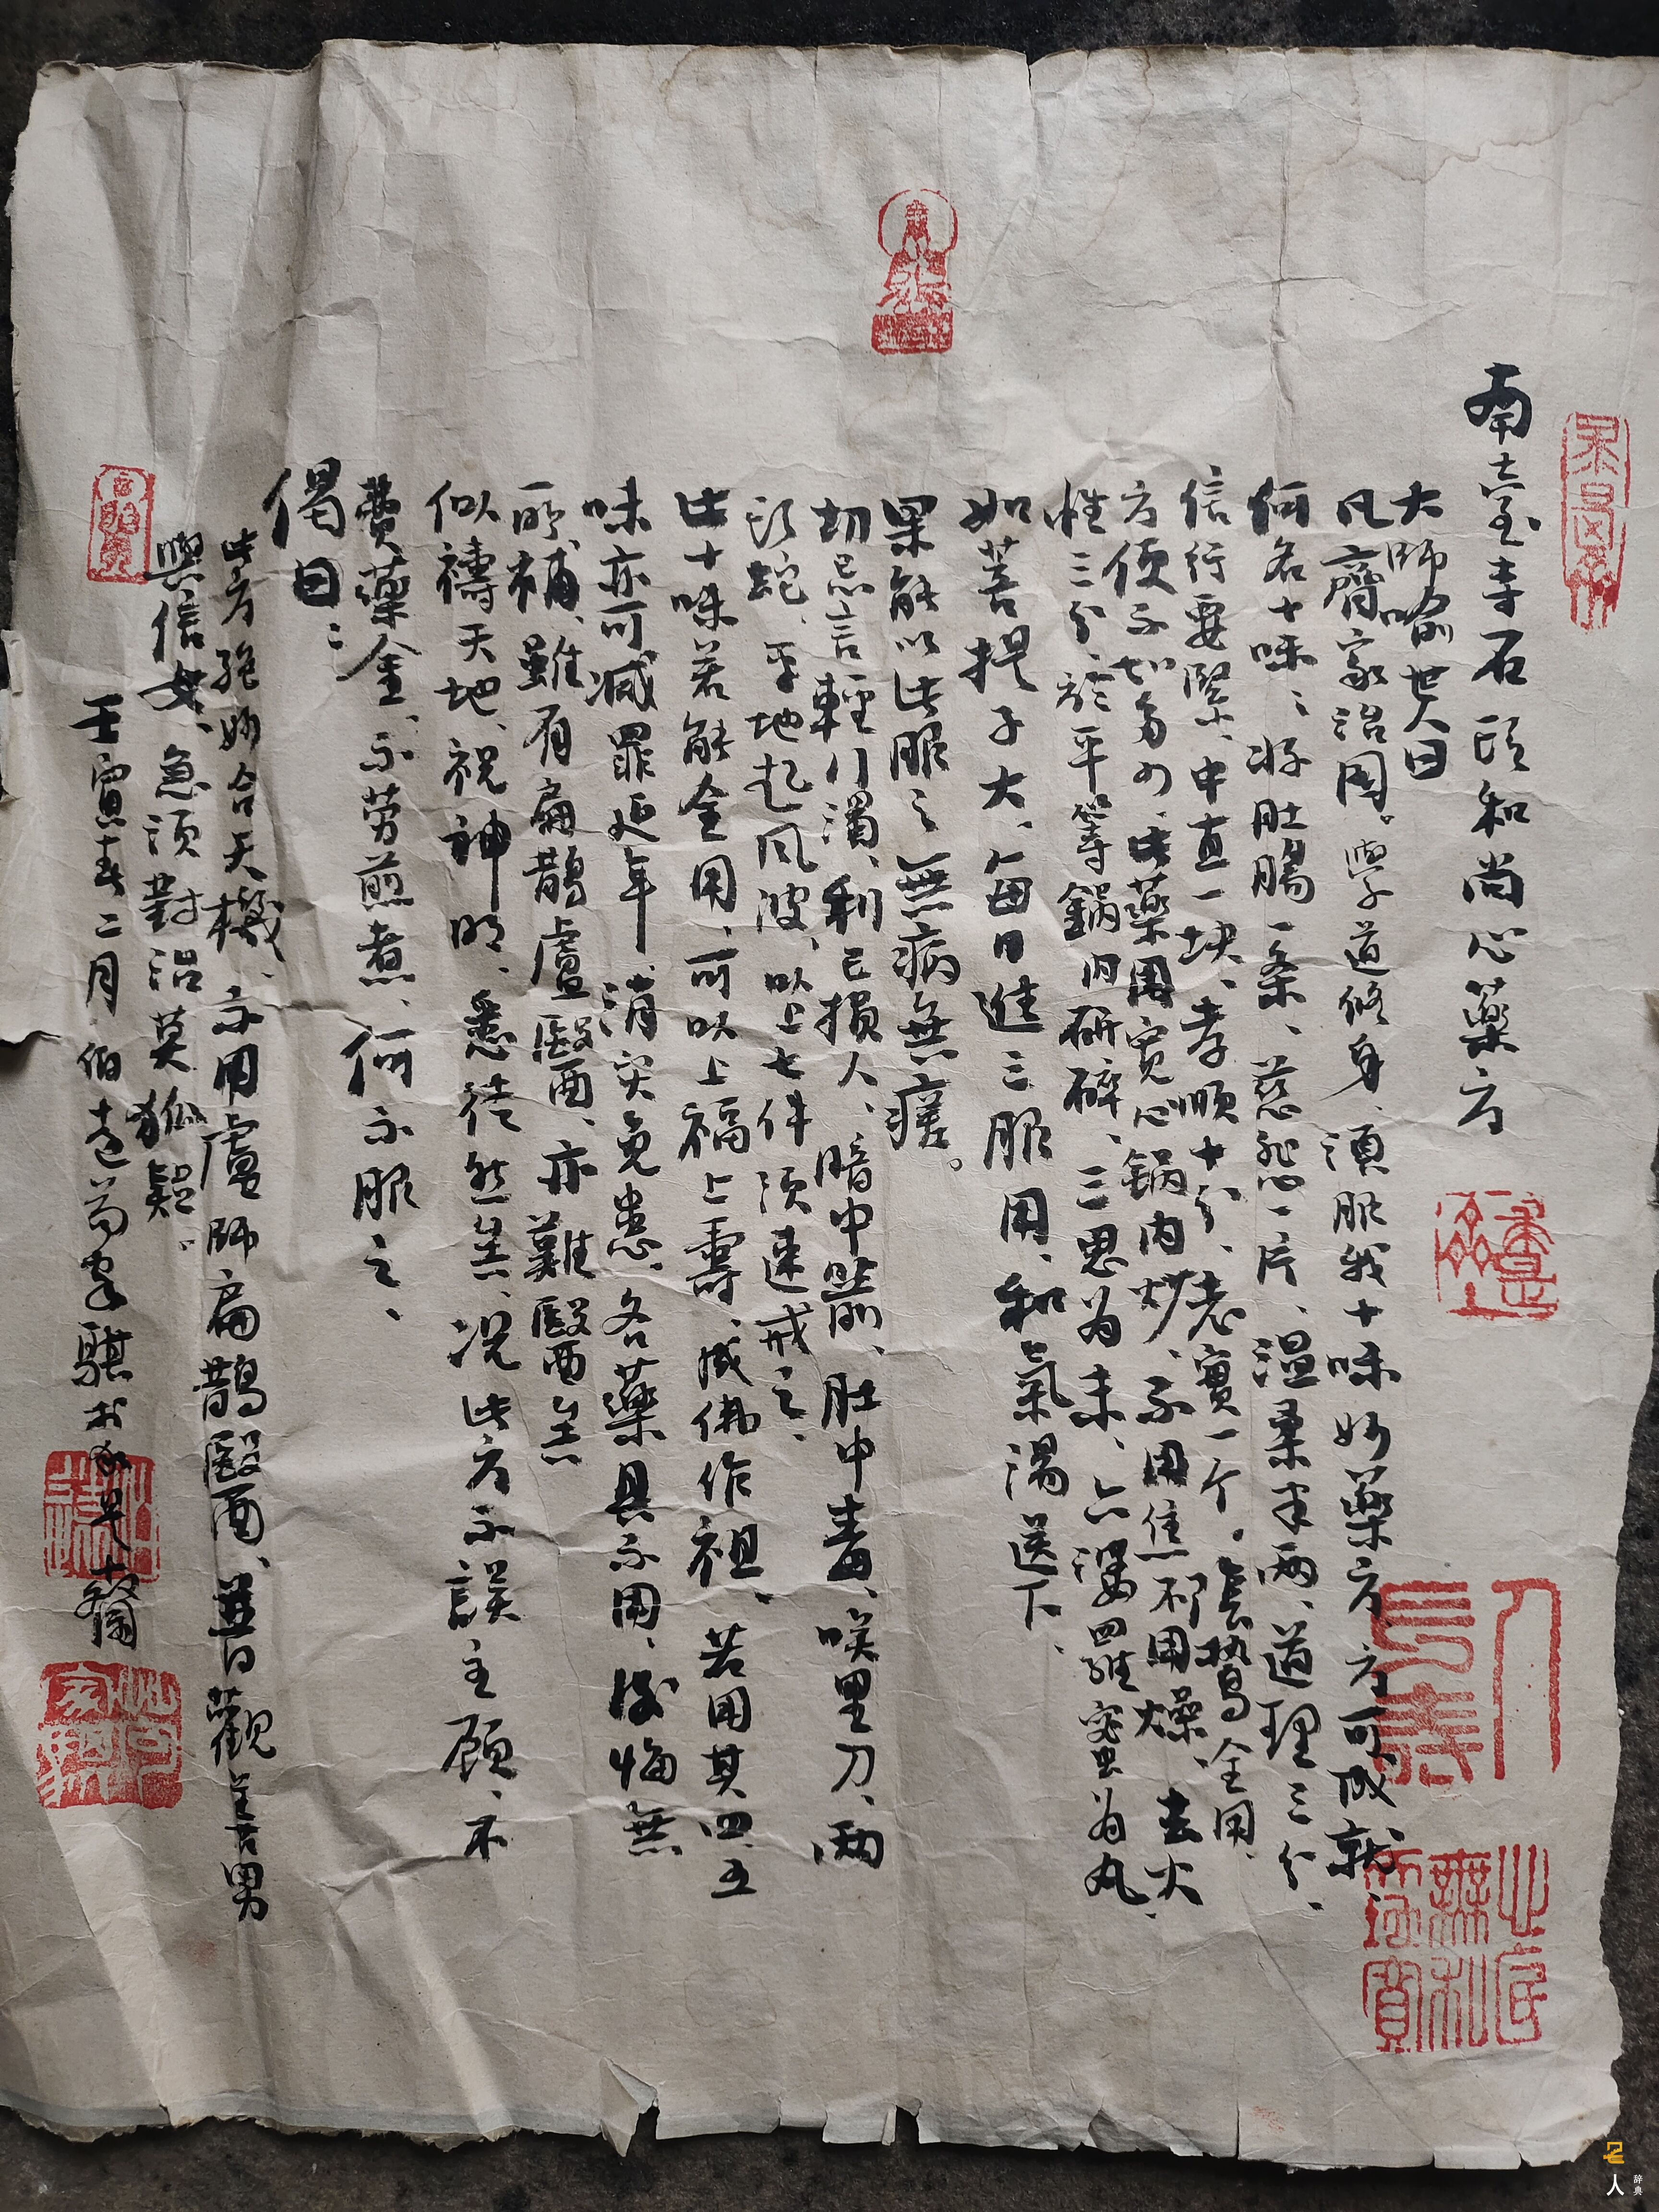 南臺寺石頭和尚心藥方
大師喻世人曰
凡齊家治国。學道修身、須服我十味妙藥方、方可成就
何名十味、好肚腸一条、慈悲心一片、温柔半两、道理三分、
信行要緊、中直一块、孝順十分、老實一个。陰騭全用、
方便不拘多少、此藥用寬心鍋内炒、不用焦不用燥、去火
性三分、於平等鍋内研碎、三思为末、六波羅蜜为丸、
如菩提子大、每日進三服用、和氣湯送下、
果能以此服之、無病無瘥。
切忌言輕行濁、利己損人、暗中箭、肚中毒、咲里刀、兩
頭蛇、平地起风波、以上七件須速戒之、
此十味若能全用、可以上福上壽、成佛作祖、若用其四五
味亦可减罪延年、消灾免患、各藥具不用、後悔無
所補、雖有扁鵲盧醫、亦難醫矣
似禱天地、祝神明、悉徒然矣、況此方不誤主顧、不
費藥金、不劳煎煮、何不服之、
偈曰：
此方绝妙合天機、不用盧師扁鵲醫、普觀善男
與信女、急須對治莫狐疑。
壬寅春二月
人長壽